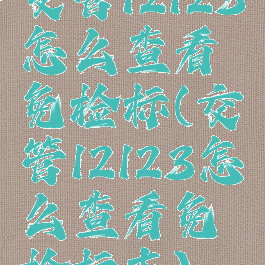 交管12123
怎么查看
免检标(交
管12123怎
么查看免
检标志)